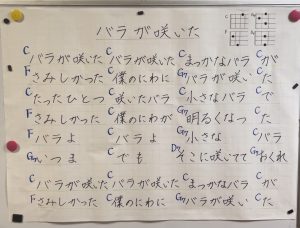 バラが咲いた
C F
F G7
C バラが咲いた C バラが咲いた C まっかなバラ C が
F さみしかった C 僕のにわに G7 バラが咲い C た
C たったひとつ C 咲いたバラ C 小さなバラ C で
F さみしかった C 僕のにわが G7 明るくなっ C た
F バラよ C バラよ G7 小さな C バラ
G7 いつま C でも D7 そこに咲いてて G7 おくれ
C バラが咲いた C バラが咲いた C まっかなバラ C が
F さみしかった C 僕のにわに G7 バラが咲い C た